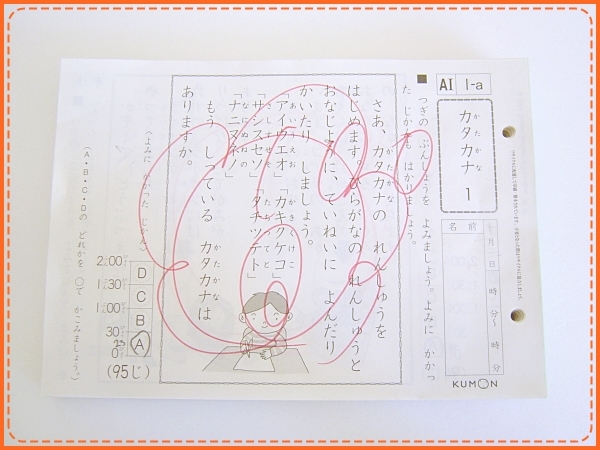 AI 1-a
かたかな
カタカナ 1
名前
月 日
時 分～ 時 分
KUMON
■ つぎの ぶんしょうを よみましょう。よみに かかっ
た じかんも はかりましょう。
さあ、カタカナの れんしゅうを
はじめます。ひらがなの れんしゅうと
おなじように、ていねいに よんだり
かいたり しましょう。
「アイウエオ」「カキクケコ」
あいうえお かきくけこ
「サシスセソ」「タチツテト」
さしすせそ たちつてと
「ナニヌネノ」
なにぬねの
もう しっている カタカナは
かたかな
ありますか。
(よみに かかった じかん)
2:00
1:30
1:00
0
D
C
B
A
(95じ)
(A・B・C・Dの どれかを ○で かこみましょう。)